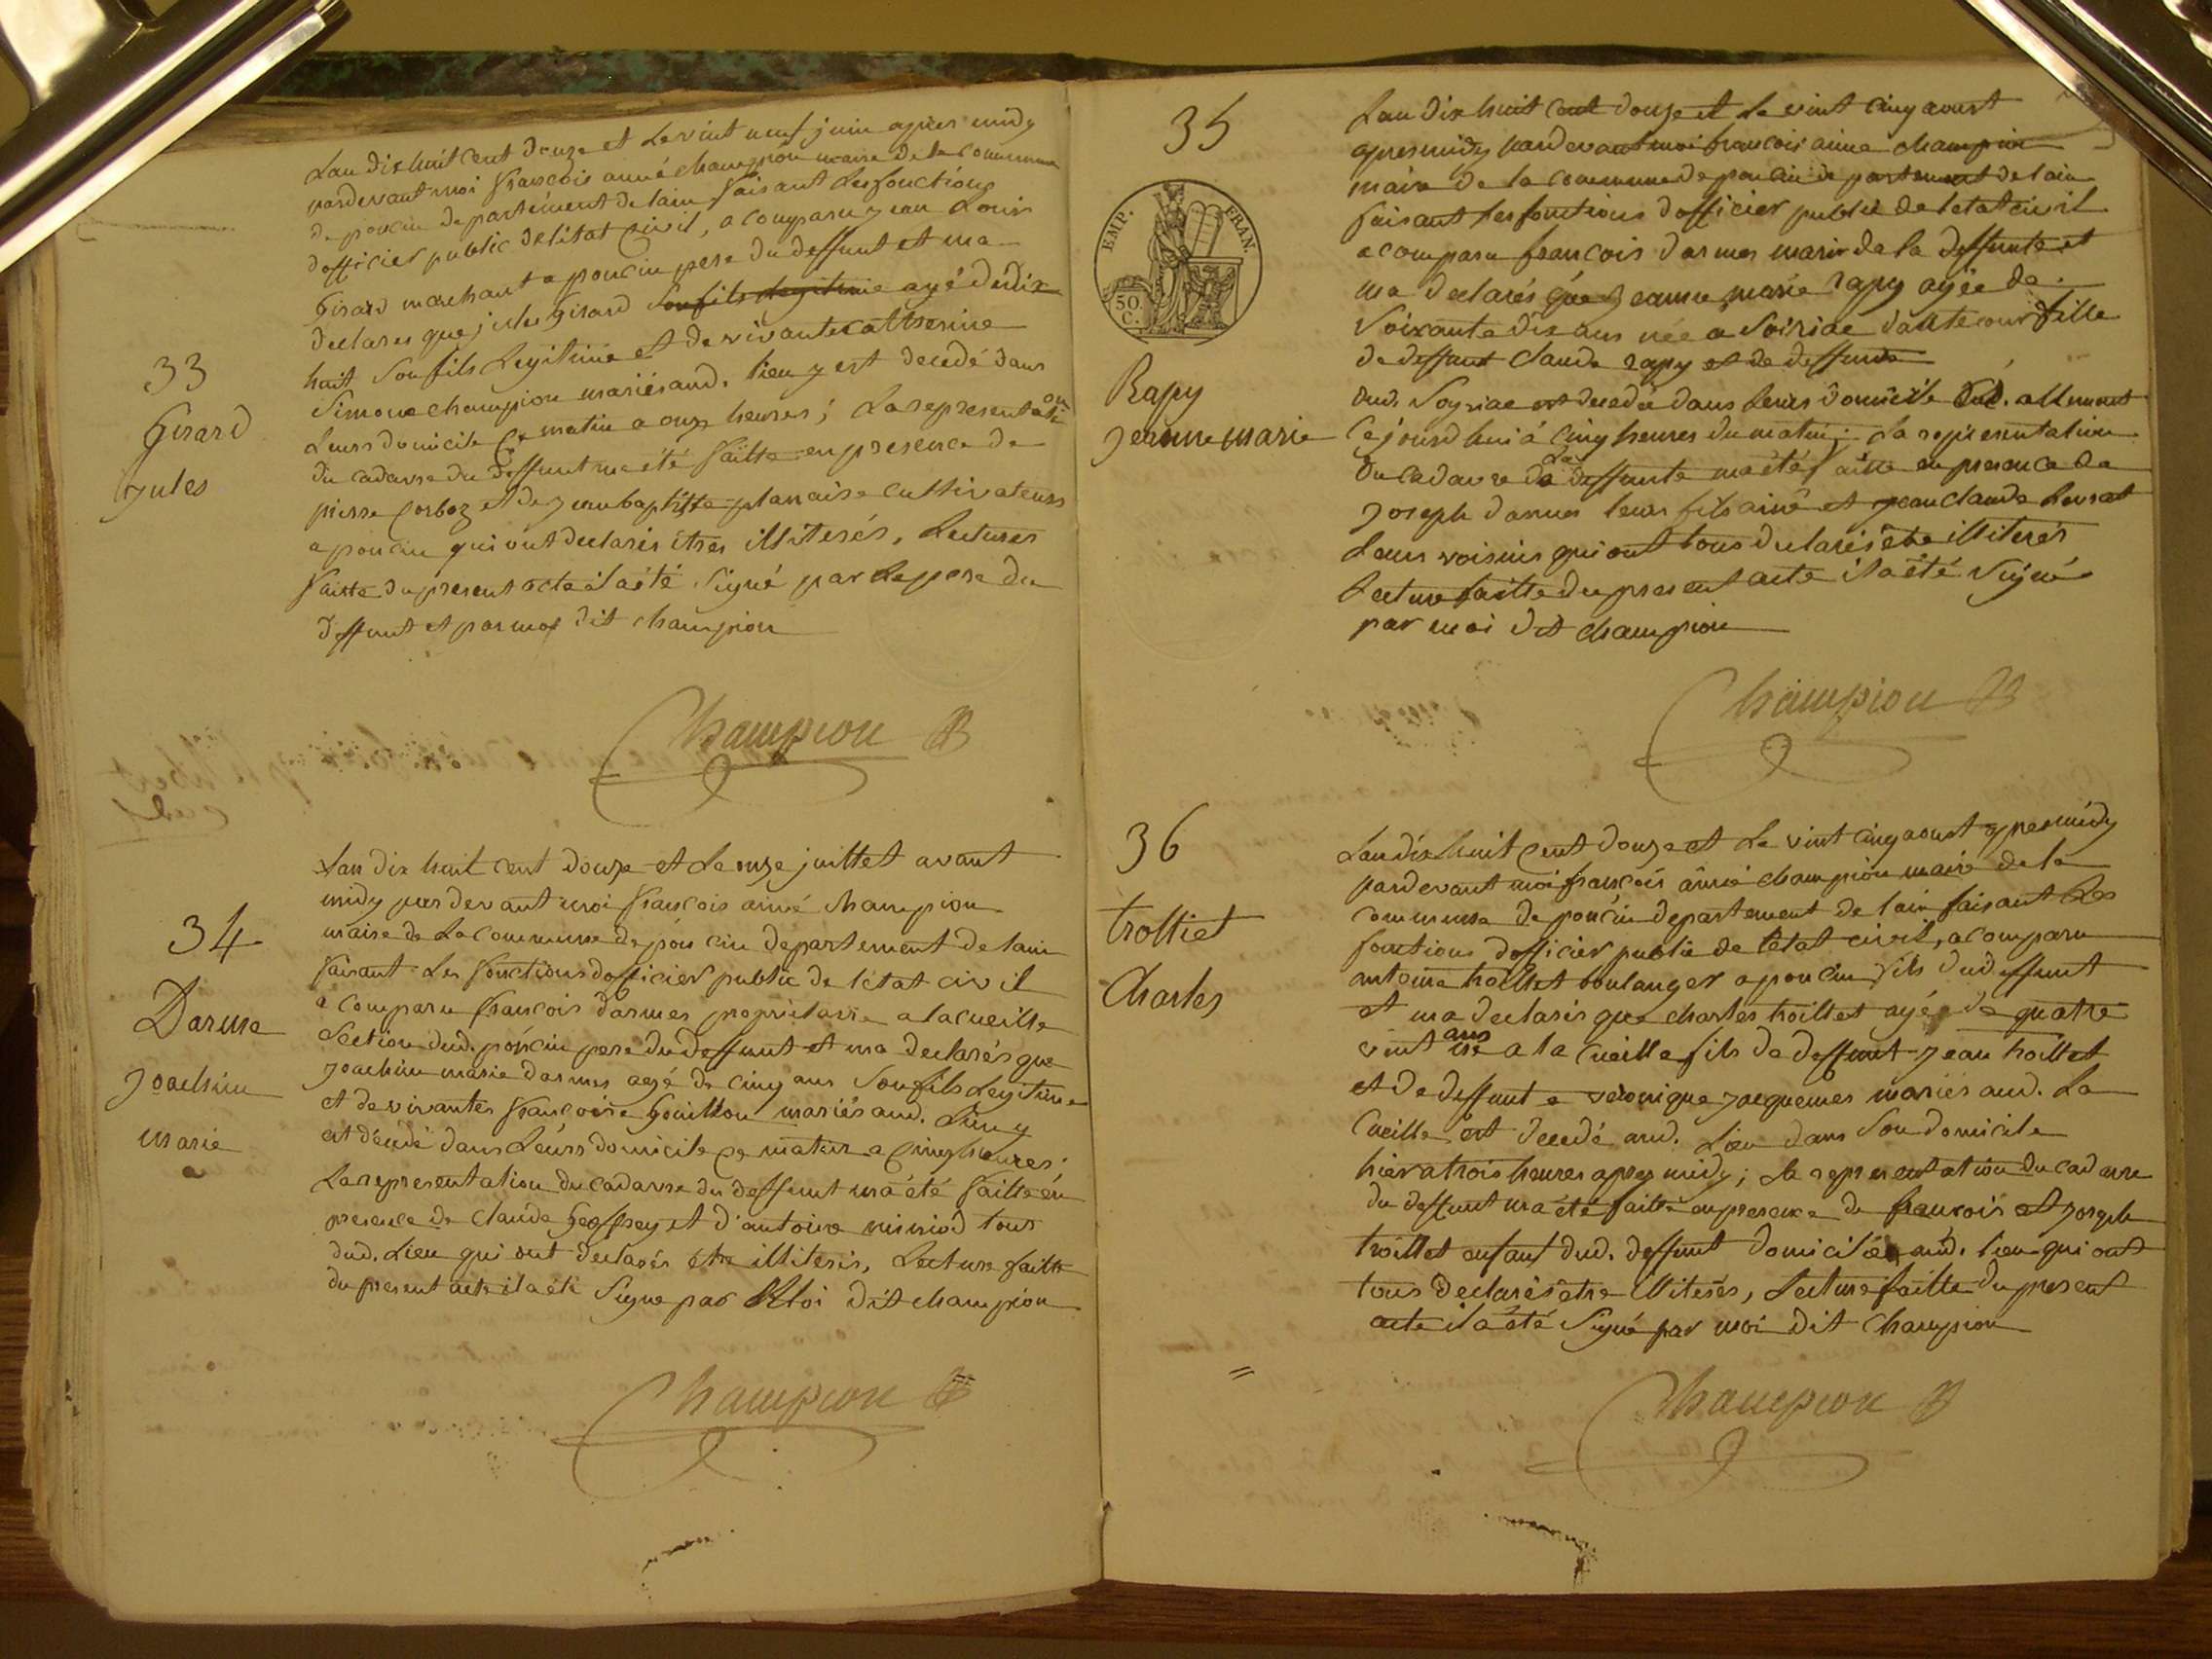 Lan dix huit cent douze et Le vint neuf juin apres midy
pardevant moi francois aimé champion maire de la commune
de poncin departement de lain faisant Les fonctions
dofficier public de létat civil, a comparu jean Louis
Girard marchant a poncin pere du deffunt et ma
declarés que jules Girard son fils legitime agé de dix
huit son fils Legitime et de vivante catherine
Simone champion mariés aud. lieu y est decedé dans
Leurs domicile Ce matin a onze heures; La representation
du cadavre du deffunt ma été faitte en presence de
pierre Corboz et de jean baptiste planaise cultivateurs
a poncin qui ont declarés êtres illiterés, Lectures
faitte du present acte il a été signé par Le pere du
deffunt et par moi dit champion
33
Girard
Jules
Champion
Lan dix huit cent douze et Le onze juillet avant
midy par devant moi francois aimé champion
maire de La commune de poncin departement de lain
faisant Les fonctions dofficier public de létat civil
a comparu francois darmes proprietaire a la cueille
Section dud. poncin pere du deffunt et ma declarés que
joachim marie darmes agé de cinq ans Son fils Legitime
et de vivantes francoise Gouillon mariés aud. Lieu y
est décédé dans Leurs domicile ce matin a cinq heures;
La representation du cadavre du deffunt ma été faitte én
presence de claude Geoffrey et d'antoine miniod tous
dud. Lieu qui ont declarés être illiterés, Lecture faitte
du present acte il a été Signé par Moi dit champion
34
Darme
Joachim
marie
Champion
35
EMP. FRAN.
50 C.
Rapy
jeanne marie
Lan dix huit cent douze et Le vint cinq aoust
apres midy pardevant moi francois aimé champion
maire de la commune de poncin departement de lain
faisant les fonctions dofficier public de letat civil
a comparu francois darmes marir de la deffunte et
ma declarés que jeanne marie rapy agée de
Soixante dix ans née a Soiriae dalte cour fille
de deffunt Claude rapy et de deffunte
dud. Soyriae est decedée dans Leurs domicile
Cejourdhui à Cinq heures du matin; La representation
du cadavre de La deffunte ma été faitte en presence de
joseph darmes leurs fils ainé et jean claude
Leurs voisins qui ont tous declarés être illiterés
Lecture faitte du present acte il a été Signé
par moi dit champion
Champion
36
trolliet
Charles
Lan dix huit cent douze et Le vint cinq aoust apres midy
pardevant moi francois aimé champion maire de la
commune de poncin departement de lain faisant Les
fonctions dofficier public de létat civil, a comparu
antoine troillet boulanger a poncin fils dud deffunt
et ma declarés que charles troillet agé de quatre
vint ans né a la Cueille fils de deffunt jean troillet
et de deffunt e veronique jacquemes mariés aud. La
Cueille est decedé aud. Lieu dans Son domicile
hier a trois heures apres midy; La representation du cadavre
du deffunt ma été faitte en presence de francois et joseph
troillet enfant dud. deffunt domiciliés aud. lieu qui ont
tous declarés être illiterés, Lecture faitte du present
acte il a été Signé par moi dit champion
Champion